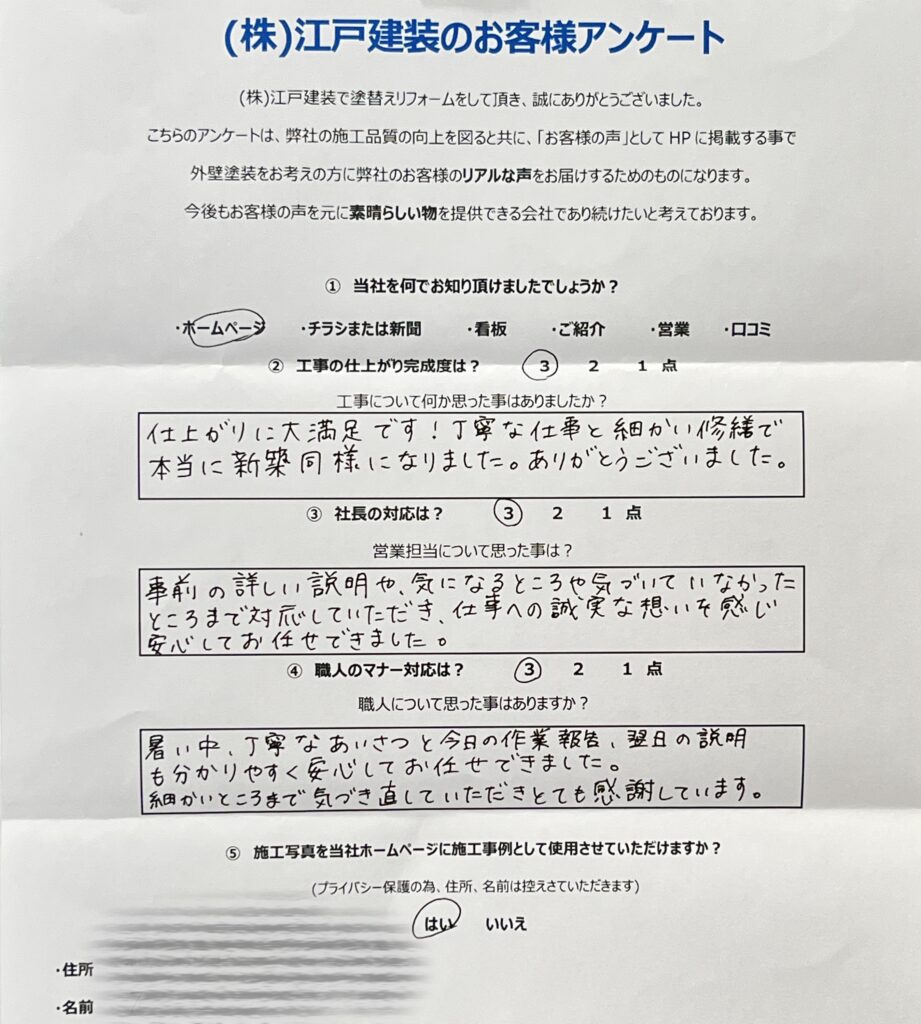 (株)江戸建装のお客様アンケート
(株)江戸建装で塗替えリフォームをして頂き、誠にありがとうございました。
こちらのアンケートは、弊社の施工品質の向上を図ると共に、「お客様の声」として HP に掲載する事で
外壁塗装をお考えの方に弊社のお客様のリアルな声をお届けするためのものになります。
今後もお客様の声を元に素晴らしい物を提供できる会社であり続けたいと考えております。
① 当社を何でお知り頂けましたでしょうか？
・ホームページ ・チラシまたは新聞 ・看板 ・ご紹介 ・営業 ・口コミ
② 工事の仕上がり完成度は？ 3 2 1 点
工事について何か思った事はありましたか？
仕上がりに大満足です！丁寧な仕事と細かい修繕で
本当に新築同様になりました。ありがとうございました。
③ 社長の対応は？ 3 2 1 点
営業担当について思った事は？
事前の詳しい説明や、気になるところや気づいていなかった
ところまで対応していただき、仕事への誠実な想いを感じ
安心してお任せできました。
④ 職人のマナー対応は？ 3 2 1 点
職人について思った事はありますか？
暑い中、丁寧なあいさつと今日の作業報告、翌日の説明
も分かりやすく安心してお任せできました。
細かいところまで気づき直していただきとても感謝しています。
⑤ 施工写真を当社ホームページに施工事例として使用させていただけますか？
(プライバシー保護の為、住所、名前は控えさていただきます)
はい いいえ
・住所
・名前